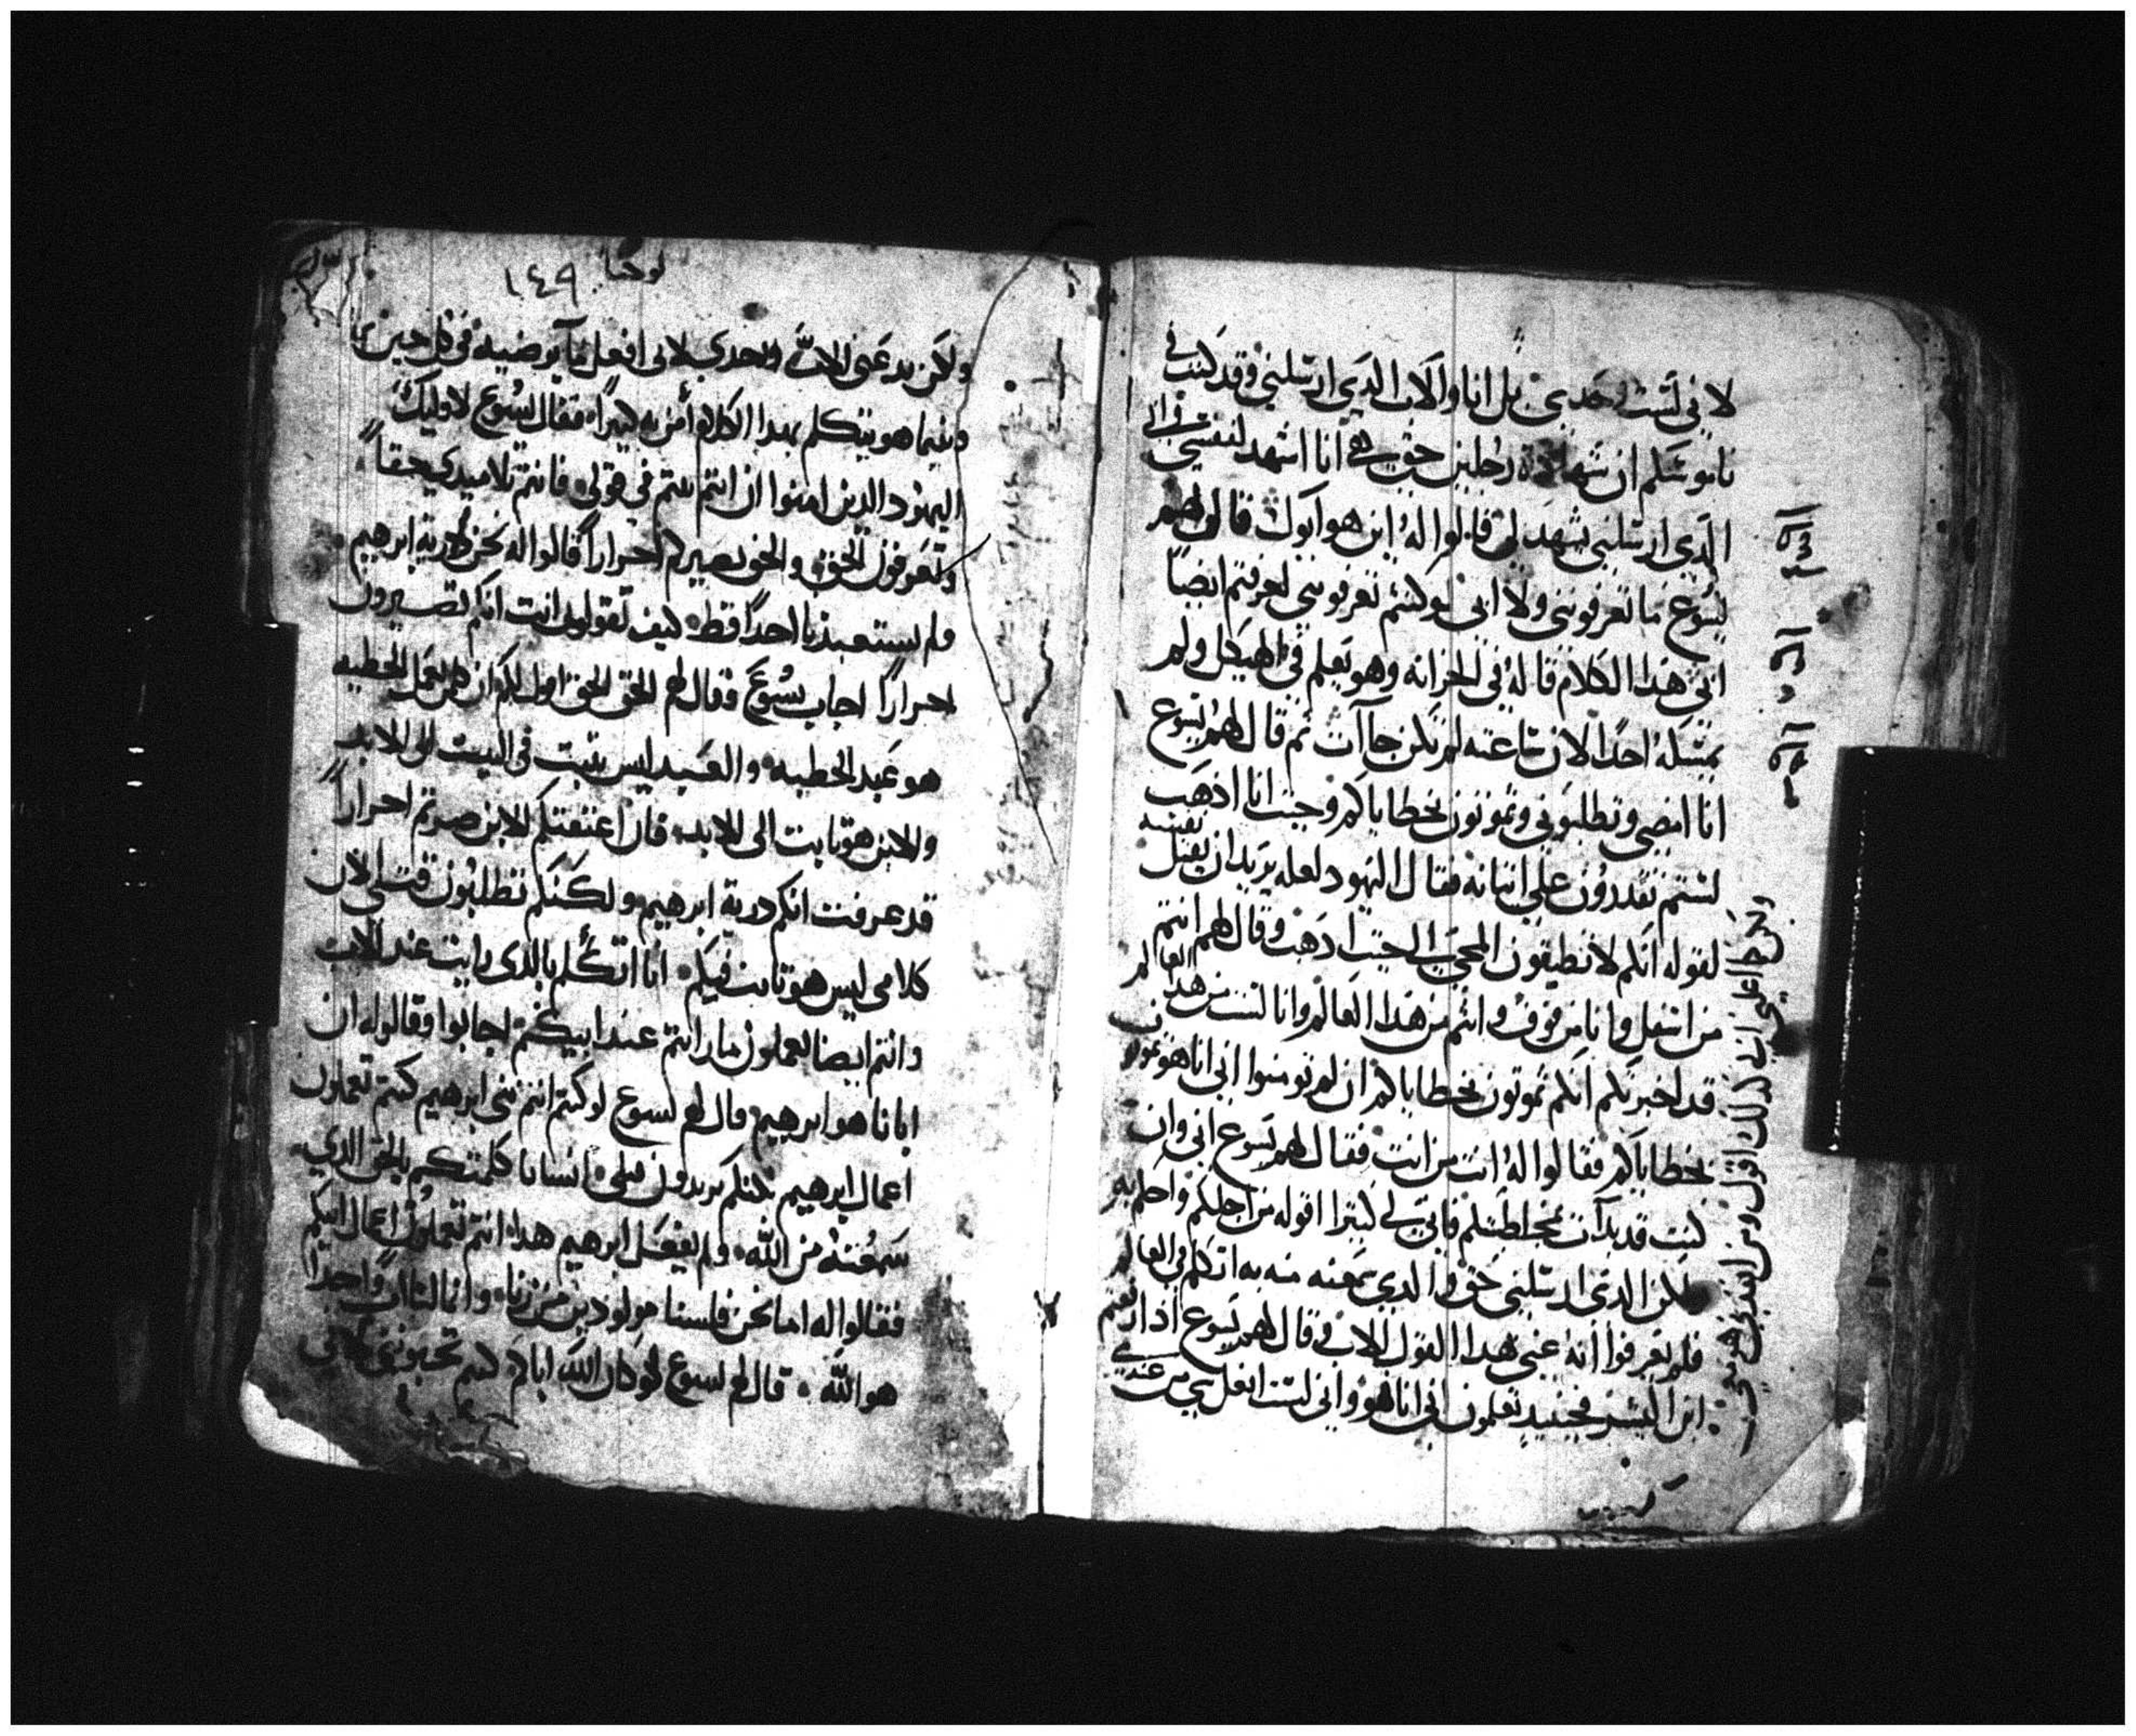 لاني لست وحدي بل انا والاب الذي ارسلني وقد كتب في
ناموسكم ان شهادة رجلين حق هي انا اشهد لنفسي وابي
الذي ارسلني يشهد لي قالوا له اين هو ابوك قال لهم
يسوع ما تعرفونني ولا ابي لو كنتم تعرفونني لعرفتم ايضاً
ابي هذا الكلام قاله في الخزانه وهو يعلم في الهيكل ولم
يمسكه احداً لان ساعته لم تكن جاآت ثم قال لهم يسوع
انا امضي وتطلبوني وتموتون بخطاياكم وحيث انا اذهب
لستم تقدرون على اتيانه فقال اليهود لعله يريد ان يقتل نفسه
لقوله انكم لا تطيقون المجي الى حيث اذهب وقال لهم انتم
من اسفل وانا من فوق وانتم من هذا العالم وانا لست من هذا العالم
قد اخبرتكم انكم تموتون بخطاياكم ان لم تومنوا اني انا هو
بخطاياكم فقالوا له انت من انت فقال لهم يسوع اني وان
كنت قد بدات بمخاطبتكم فان لي كثيرا اقوله من اجلكم واحكم به
لكن الذي ارسلني حق والذي سمعته منه به اتكلم في العالم
فلم يعرفوا انه عنى بهذا القول الاب وقال لهم يسوع اذا رفعتم
ابن البشر فحينيدٍ تعلمون اني انا هو واني لست افعل شي من عندي
يوحنا ١٤٩
ولكن يدعني الاب وحدي لاني افعل ما يرضيه في كل حين
وفيما هو يتكلم بهدا الكلام أمن به كثيراً فقال يسوع لاوليك
اليهود الذين امنوا ان انتم ثبتم في قولي فانتم تلاميدي حقاً
وتعرفون الحق والحق يصيركم احراراً قالوا له نحن درية ابرهيم
ولم يستعبدنا احداً قط كيف تقول انت انكم تصيرون
احراراً اجاب يسوع وقال لهم الحق الحق اقول لكم ان كل من يعمل الخطيه
هو عبد الخطيه والعبد ليس يثبت في البيت الى الابد
والابن هو ثابت الى الابد فان اعتقتكم الابن صرتم احراراً
قد عرفت انكم درية ابرهيم ولكنكم تطلبون قتلي لان
كلامي ليس هو ثابت فيكم انا اتكلم بالدي رايت عند الاب
وانتم ايضا تعملون ما رايتم عند ابيكم اجابوا وقالوا له ان
ابانا هو ابرهيم قال لهم يسوع لو كنتم انتم بني ابرهيم كنتم تعملون
اعمال ابرهيم لكنكم تريدون قتلي انسانا كلمتكم بالحق الدي
سمعته من الله ولم يفعل ابرهيم هدا انتم تعملون اعمال ابيكم
فقالوا له اما نحن فلسنا مولودين من زنا وانما لنا اب واحداً
هو الله قال لهم يسوع لو كان الله اباكم كنتم تحبونني لاني